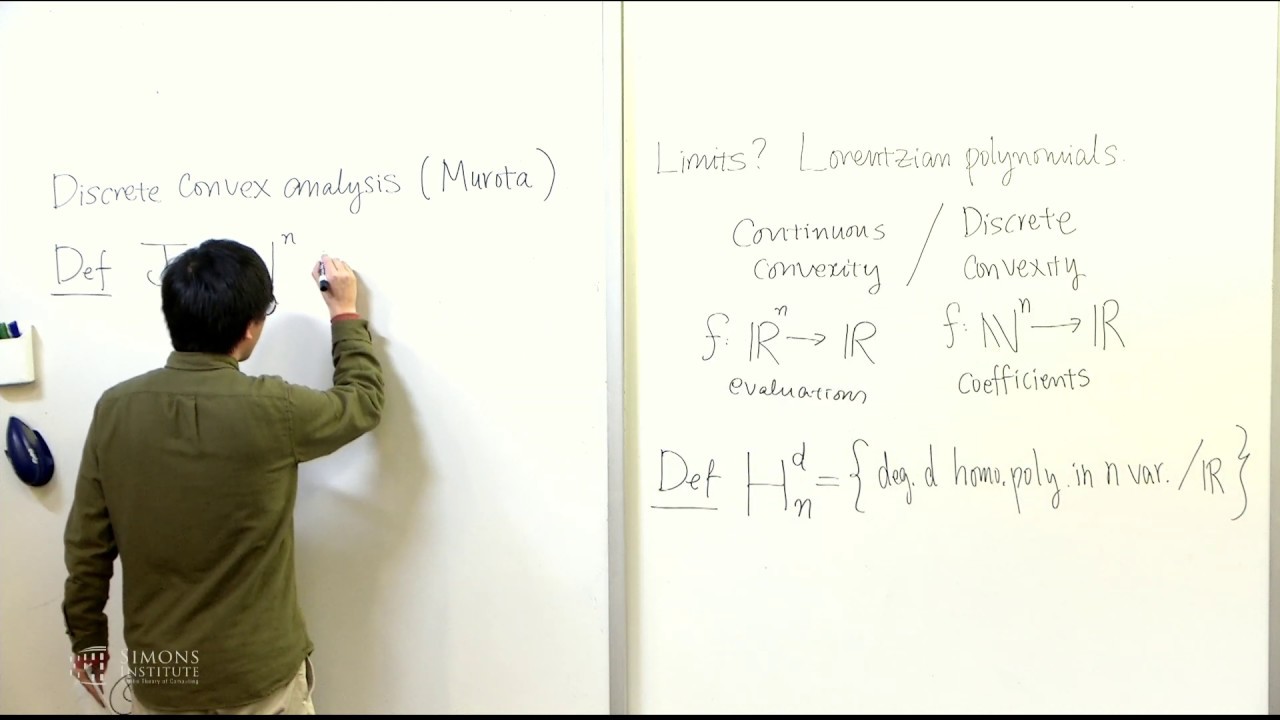 Discrete convex analysis (Murota)
Def J n
Limits? Lorentzian polynomials.
Continuous / Discrete
convexity convexity
f: ℝⁿ → ℝ f: ℕⁿ → ℝ
evaluations coefficients
Def Hₙᵈ = { deg. d homo. poly. in n var. / ℝ }
SIMONS
INSTITUTE
for the Theory of Computing